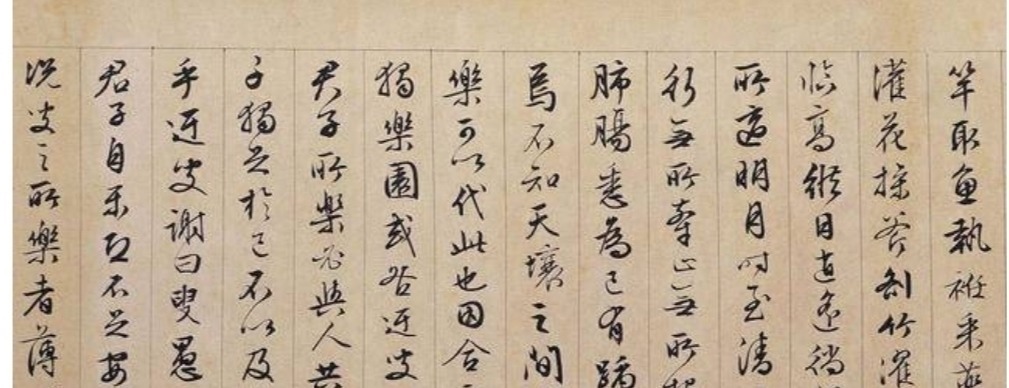 竿取魚執衽采
灌花操斧剖竹濯
臨高縱目逍遙徜
所適明月時至清
行無所牽止無所
肺腸悉為己有踽
焉不知天壤之間
樂可以代此也因合
獨樂園或咎迂叟
君子所樂必與人共
子獨足於己不以及
乎迂叟謝曰叟愚
君子自樂恐不足安
況叟之所樂者薄